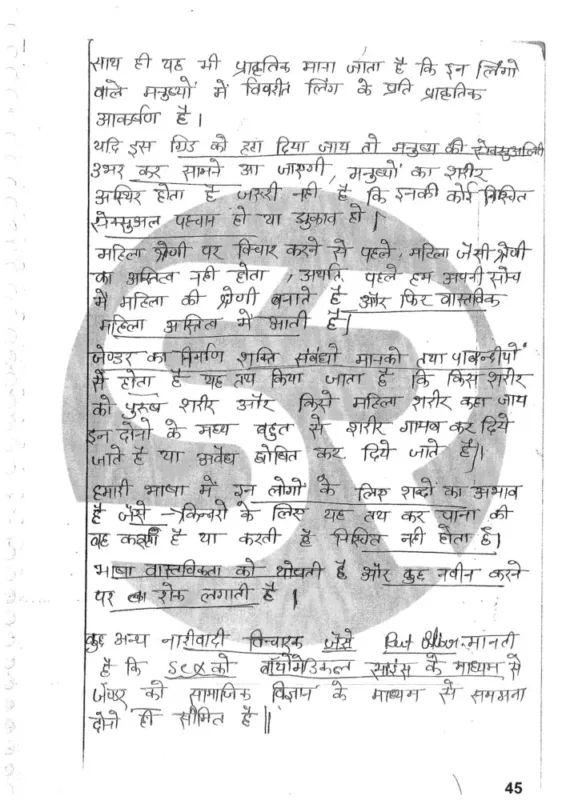 साथ ही यह भी प्राकृतिक माना जाता है कि इन लिंगो
वाले मनुष्यों में विपरीत लिंग के प्रति प्राकृतिक
आकर्षण है।
यदि इस ग्रिड को हटा दिया जाय तो मनुष्य की सेक्सुअलिटी
उभर कर सामने आ जाएगी, मनुष्यों का शरीर
अस्थिर होता है जरुरी नही है कि इनकी कोई निश्चित
सेक्सुअल पहचान हो या झुकाव हो।
महिला श्रेणी पर विचार करने से पहले, महिला जैसी श्रेणी
का अस्तित्व नही होता, अर्थात् पहले हम अपनी सोच
में महिला की श्रेणी बनाते है और फिर वास्तविक
महिला अस्तित्व में आती है।
जेण्डर का निर्माण शक्ति संबंधो मानको तथा पाबन्दीयों
से होता है यह तय किया जाता है कि किस शरीर
को पुरुष शरीर और किसे महिला शरीर कहा जाय
इन दोनो के मध्य बहुत से शरीर गायब कर दिये
जाते है या अवैध घोषित कर दिये जाते है।
हमारी भाषा में इन लोगों के लिए शब्दों का अभाव
है जैसे → किन्नरो के लिए यह तय कर पाना की
वह करता है या करती है निश्चित नही होता है।
भाषा वास्तविकता को थोपती है और कुछ नवीन करने
पर रोक लगाती है।
कुछ अन्य नारीवादी विचारक जैसे मानती
है कि Sex को बॉयोमेडिकल साइंस के माध्यम से
जेण्डर को सामाजिक विज्ञान के माध्यम से समझना
दोनो ही सीमित है॥
45